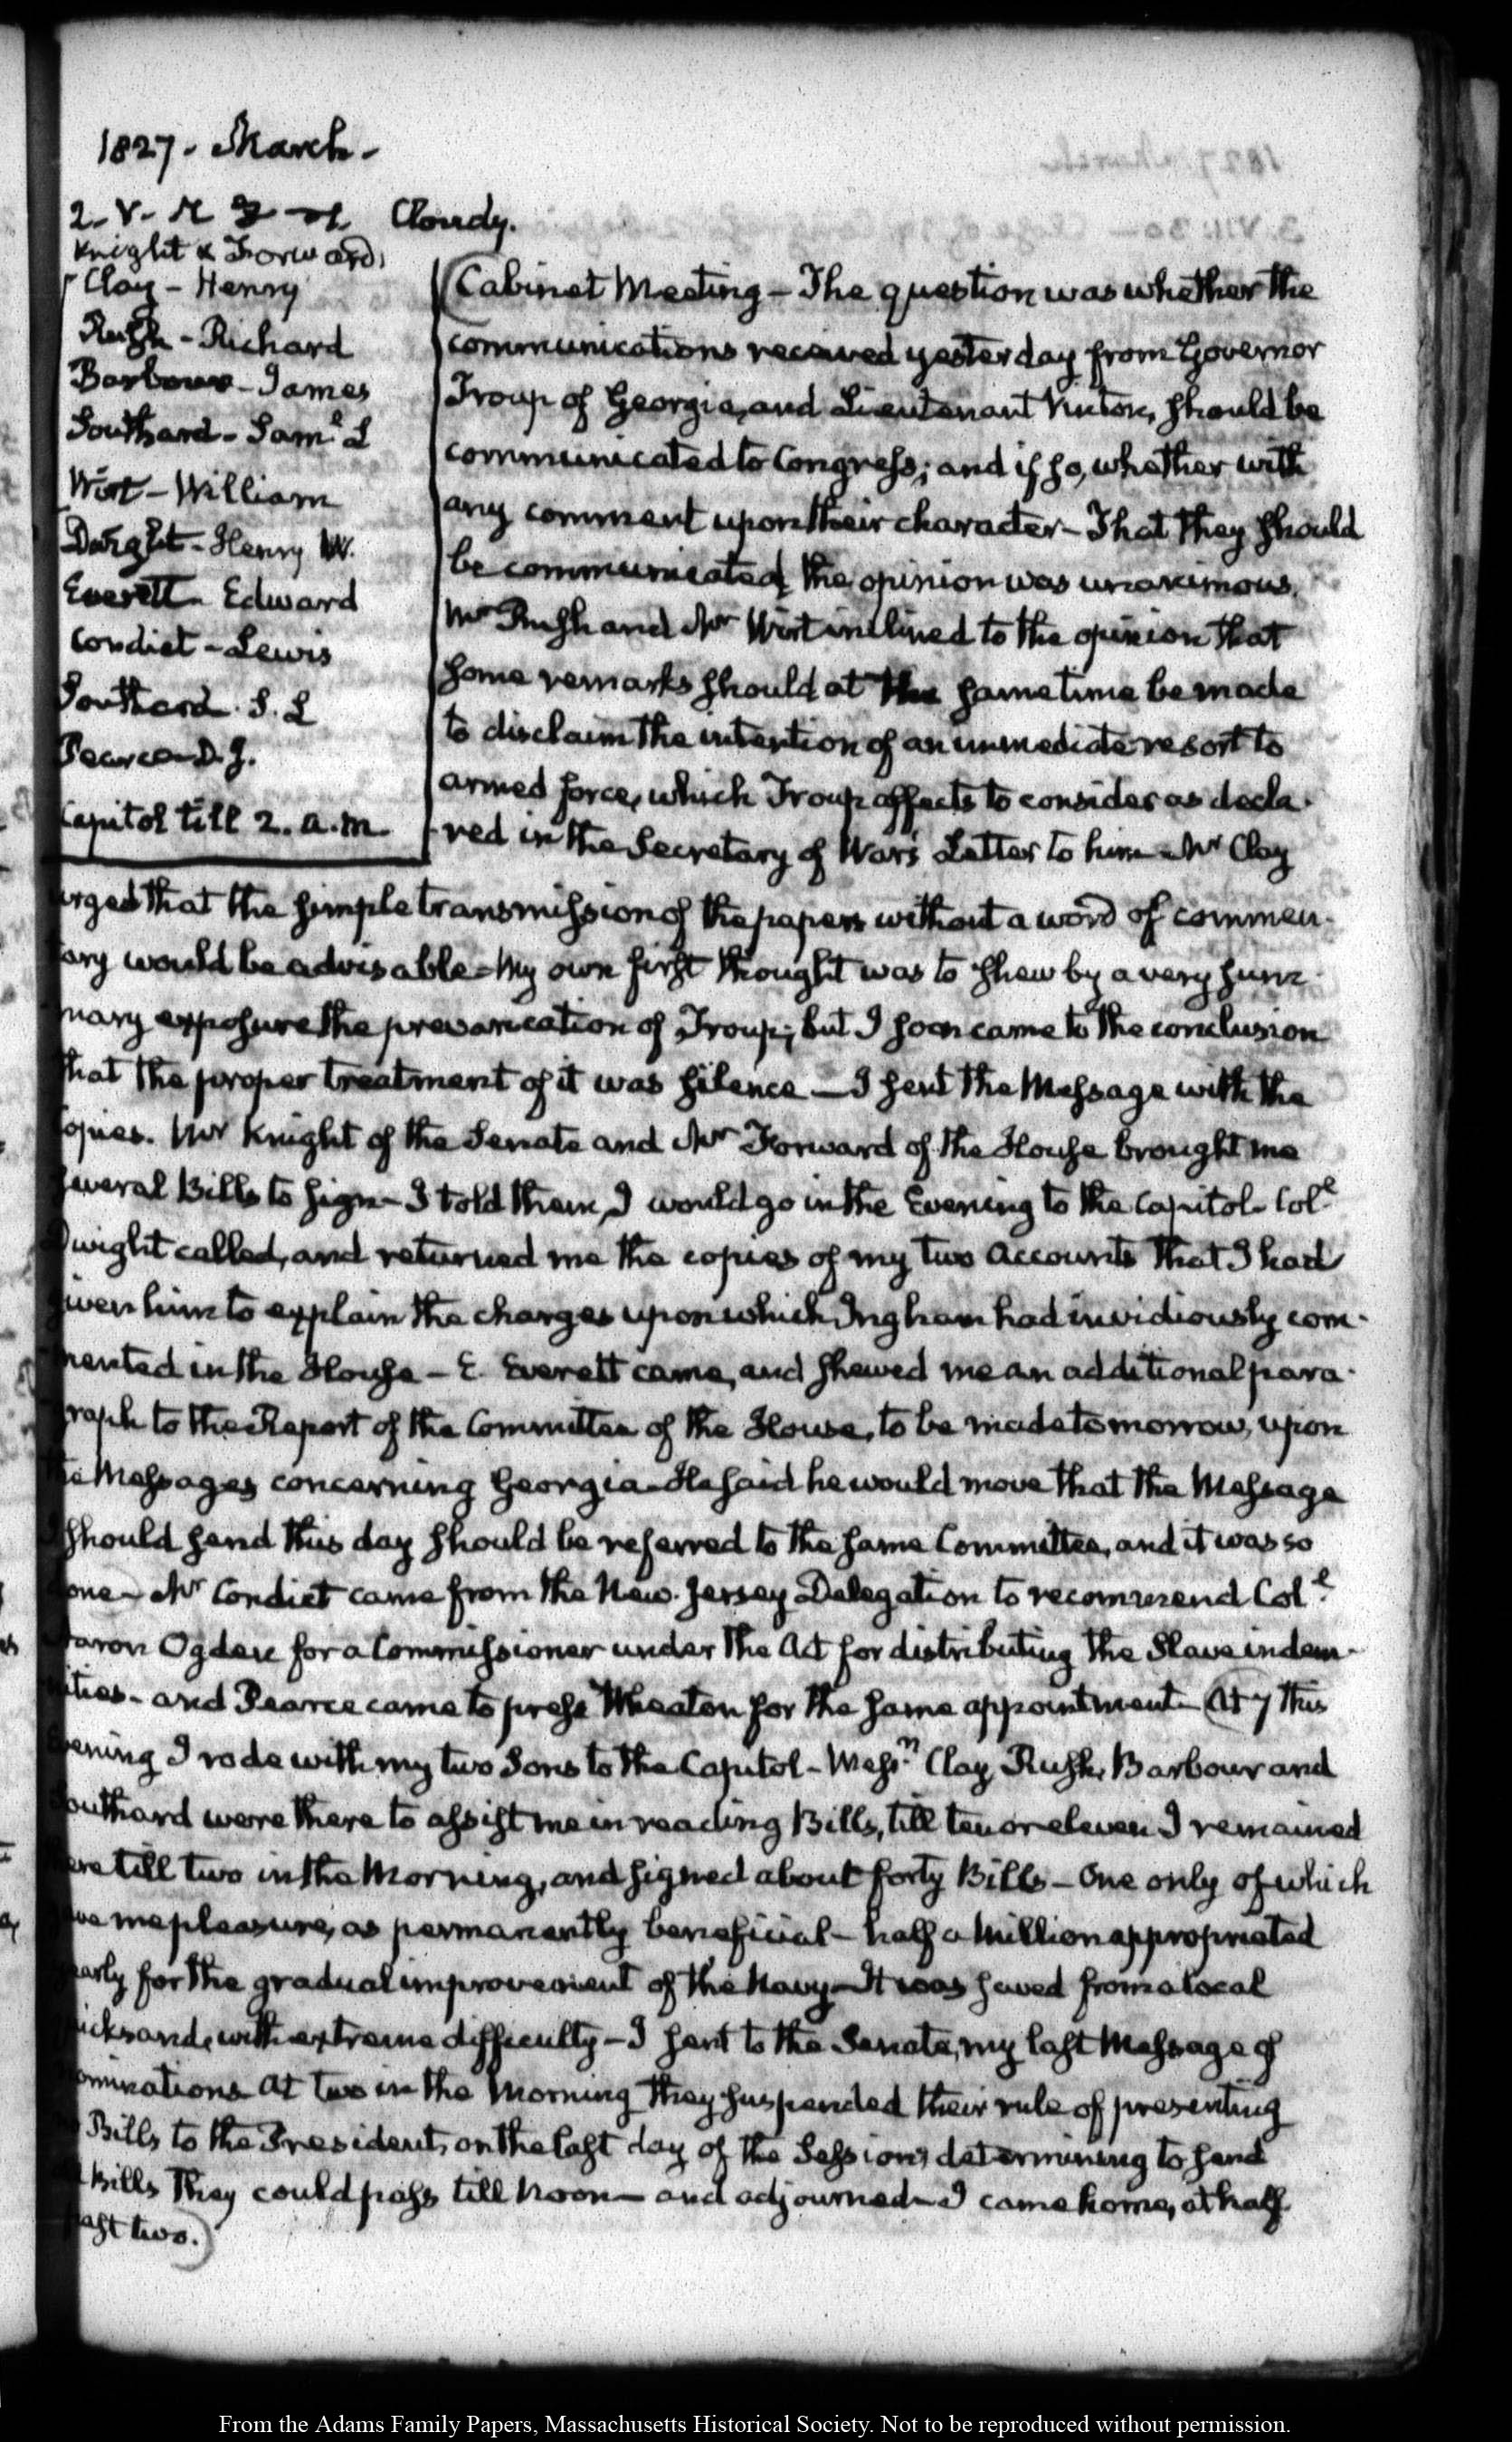 1827. March.
2. V. Cloudy.
Knight & Forward
Clay - Henry
Rush - Richard
Barbour - James
Southard - Saml. L
Wirt - William
Dwight - Henry W.
Everett - Edward
Condict - Lewis
Southard. S. L
Pearce D. J.
Capitol till 2. a.m.
(Cabinet Meeting - The question was whether the
communications received yesterday from Governor
Troup of Georgia, and Lieutenant Vinton, should be
communicated to Congress; and if so, whether with
any comment upon their character - That they should
be communicated, the opinion was unanimous.
Mr Rush and Mr Wirt inclined to the opinion that
some remarks should at the same time be made
to disclaim the intention of an immediate resort to
armed force, which Troup affects to consider as decla-
red in the Secretary of War's Letter to him - Mr Clay
urged that the simple transmission of the papers without a word of commen-
tary would be advisable - My own first thought was to shew by a very sum-
mary exposure the prevarication of Troup; but I soon came to the conclusion
that the proper treatment of it was silence - I sent the Message with the
Copies. Mr Knight of the Senate and Mr Forward of the House brought me
several Bills to sign - I told them, I would go in the Evening to the Capitol - Coll
Dwight called, and returned me the copies of my two Accounts that I had
given him to explain the charges upon which Ingham had invidiously com-
mented in the House - E. Everett came, and shewed me an additional para-
graph to the Report of the Committee of the House, to be made tomorrow, upon
the Messages concerning Georgia - He said he would move that the Message
I should send this day should be referred to the same Committee, and it was so
done - Mr Condict came from the New-Jersey Delegation to recommend Coll
Aaron Ogden for a Commissioner under the Act for distributing the Slave indem-
nities - and Pearce came to press Wheaton for the same appointment - (At 7 this
Evening I rode with my two Sons to the Capitol - Messrs Clay, Rush, Barbour and
Southard were there to assist me in reading Bills, till ten or eleven I remained
there till two in the Morning, and signed about forty Bills - One only of which
gave me pleasure, as permanently beneficial - half a Million appropriated
yearly for the gradual improvement of the Navy - It was saved from a local
quicksand, with extreme difficulty - I sent to the Senate, my last Message of
nominations - At two in the Morning they suspended their rule of presenting
no Bills to the President, on the last day of the Session; determining to send
all Bills they could pass till Noon - and adjourned - I came home, at half
past two.)
From the Adams Family Papers, Massachusetts Historical Society. Not to be reproduced without permission.